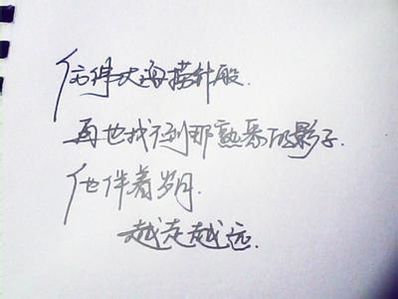 仿佛大海捞针般.
再也找不到那熟悉的影子.
他伴着岁月.
越走越远.